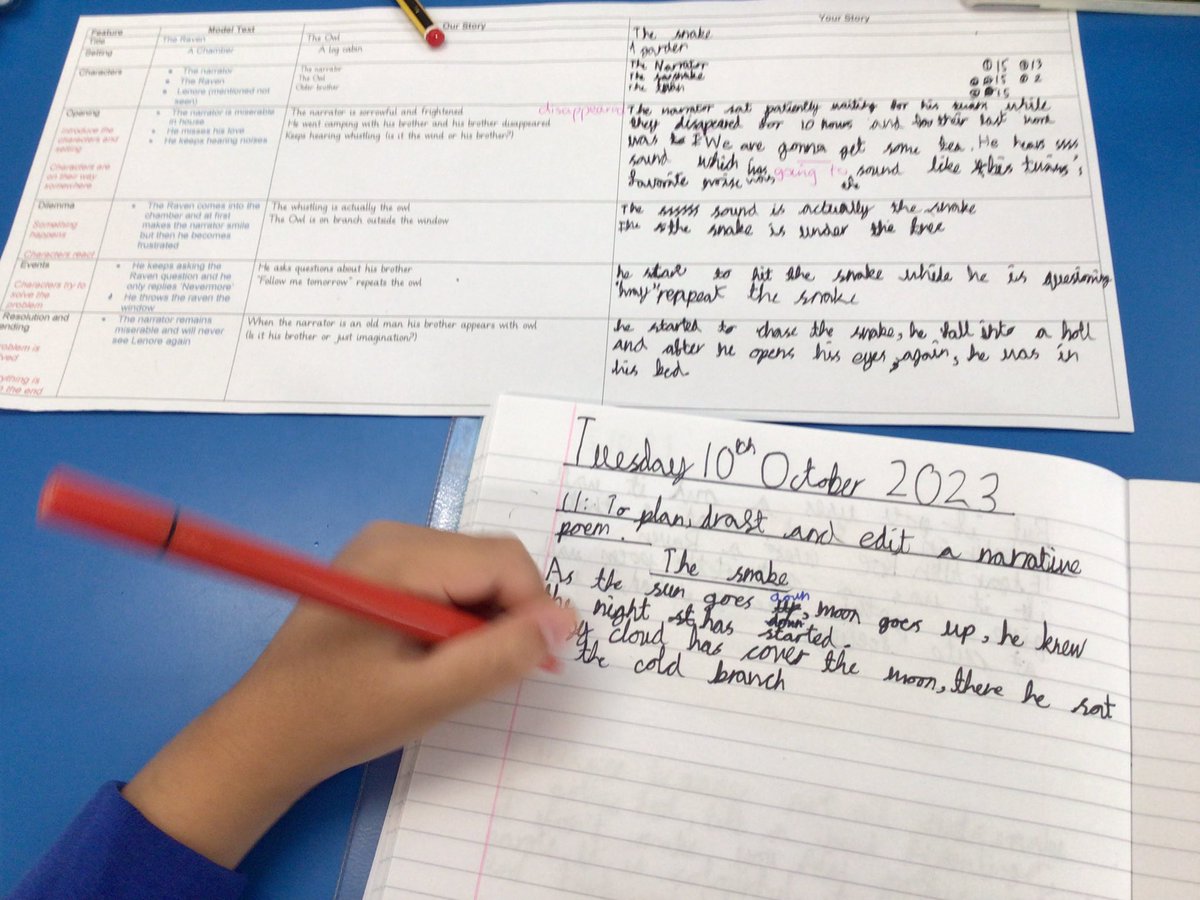 Feature Model Text Our Story Your Story
Title The Raven The Owl The snake
Setting A Chamber A log cabin A garden
Characters
The narrator
The Raven
Lenore (mentioned not
seen)
The narrator
The Owl
Older brother
The Narrator 15 13
The snake 15 2
The 15
Opening
Introduce the
characters and
setting
Characters are
on their way
somewhere
The narrator is miserable
in house
He misses his love
He keeps hearing noises
The narrator is sorrowful and frightened
He went camping with his brother and his brother disappeared
Keeps hearing whistling (is it the wind or his brother?)
disappeared
The narrator sat patiently waiting for his while
they disapeared for 10 hours and their last
was We are gonna get some tea. He hears ssss
sound which has going to sound like his twins's
favorite noise
Dilemma
Something
happens
Characters react
The Raven comes into the
chamber and at first
makes the narrator smile
but then he becomes
frustrated
The whistling is actually the owl
The Owl is on branch outside the window
The sssss sound is actually the snake
the snake is under the tree
Events
Characters try to
solve the
problem
He keeps asking the
Raven question and he
only replies 'Nevermore'
He throws the raven the
window
He asks questions about his brother
"Follow me tomorrow" repeats the owl
he start to hit the snake while he is quesioning
reppeat the snake
Resolution and
ending
roblem is
ved
ything is
the end
The narrator remains
miserable and will never
see Lenore again
When the narrator is an old man his brother appears with owl
(Is it his brother or just imagination?)
he started to chase the snake, he fall into a holl
and after he opens his eyes, again, he was in
his bed
Tuesday 10th October 2023
LI: To plan, draft and edit a narrative
poem.
The snake
As the sun goes down, moon goes up, he knew
the night has started.
cloud has cover the moon, there he sat
the cold branch